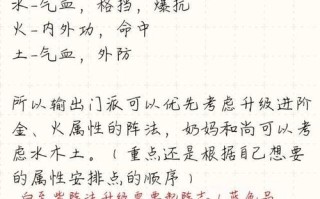 水-气血，格挡，爆抗
火-内外功，命中
土-气血，外防
所以输出门派可以优先考虑升级进阶
金、火属性的阵法，奶妈和尚可以考
虑水木土。（重点还是根据自己想要
的属性安排点的顺序）